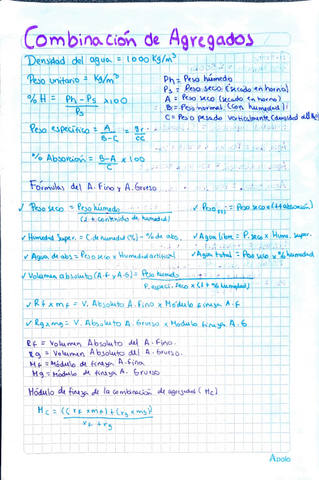 Combinación de Agregados
Densidad del agua = 1000 Kg/m³
Peso unitario = Kg/m³
Ph = Peso húmedo
Ps = Peso seco (secado en horno)
%H = Ph - Ps x100
Ps
A = Peso seco (secado en horno)
B = Peso normal (con humedad)
C = Peso pesado verticalmente (densidad del
Peso específico = A = gr
B-C cc
% Absorción = B-A x 100
A
Fórmulas del A. Fino y A. Grueso
✓ Peso seco = Peso húmedo
(1 + contenido de humedad)
✓ Peso sss = Peso seco x (1+absorción)
✓ Humedad Super. = C. de humedad (%) - % de abs.
✓ Agua libre = P. seco x Hum. super.
✓ Agua de abs = Peso seco x Humedad artificial
✓ Agua total = Peso seco x % humedad
✓ Volumen absoluto (A.f y A.G) = Peso humedo
P. especi. seco x (1 + % humedad)
✓ Rf x mf = V. Absoluto A. Fino x Módulo fineza A.F
✓ Rg x mg = V. Absoluto A. Grueso x Modulo fineza A.G
Rf = Volumen Absoluto del A. Fino.
Rg = Volumen Absoluto del A. Grueso.
Mf = Módulo de fineza A. Fino
Mg = Módulo de fineza A. Grueso
Módulo de fineza de la combinación de agregados (Mc)
Mc = ((rf x mf) + (rg x mg))
rf + rg
Apolo